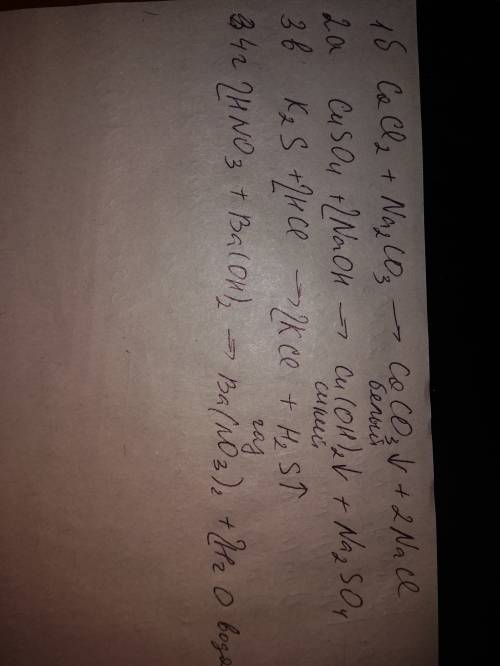 1б CaCl₂ + Na₂CO₃ → CaCO₃↓ + 2NaCl
белый
2а CuSO₄ + 2NaOH → Cu(OH)₂↓ + Na₂SO₄
синий
3в K₂S + 2HCl → 2KCl + H₂S↑
газ
4г 2HNO₃ + Ba(OH)₂ → Ba(NO₃)₂ + 2H₂O вода